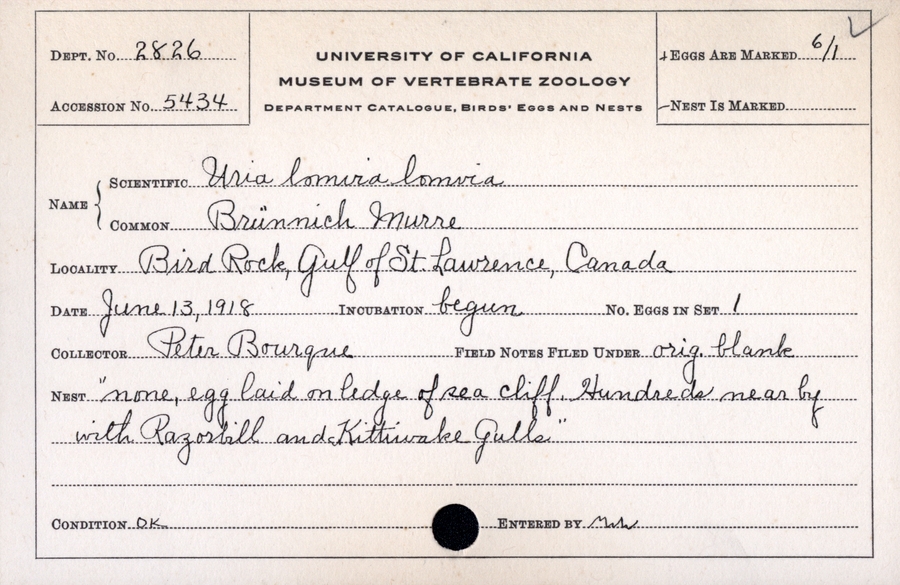 Dept. No. 2826
Accession No. 5434
UNIVERSITY OF CALIFORNIA
MUSEUM OF VERTEBRATE ZOOLOGY
Department Catalogue, Birds' Eggs and Nests
Eggs Are Marked 6/1
Nest Is Marked
Name
Scientific Uria lomvia lomvia
Common Brünnich Murre
Locality Bird Rock, Gulf of St. Lawrence, Canada
Date June 13, 1918 Incubation begun No. Eggs in Set 1
Collector Peter Bourque Field Notes Filed Under orig. blank
Nest "none, egg laid on ledge of sea cliff. Hundreds near by
with Razorbill and Kittiwake Gulls."
Condition OK Entered by